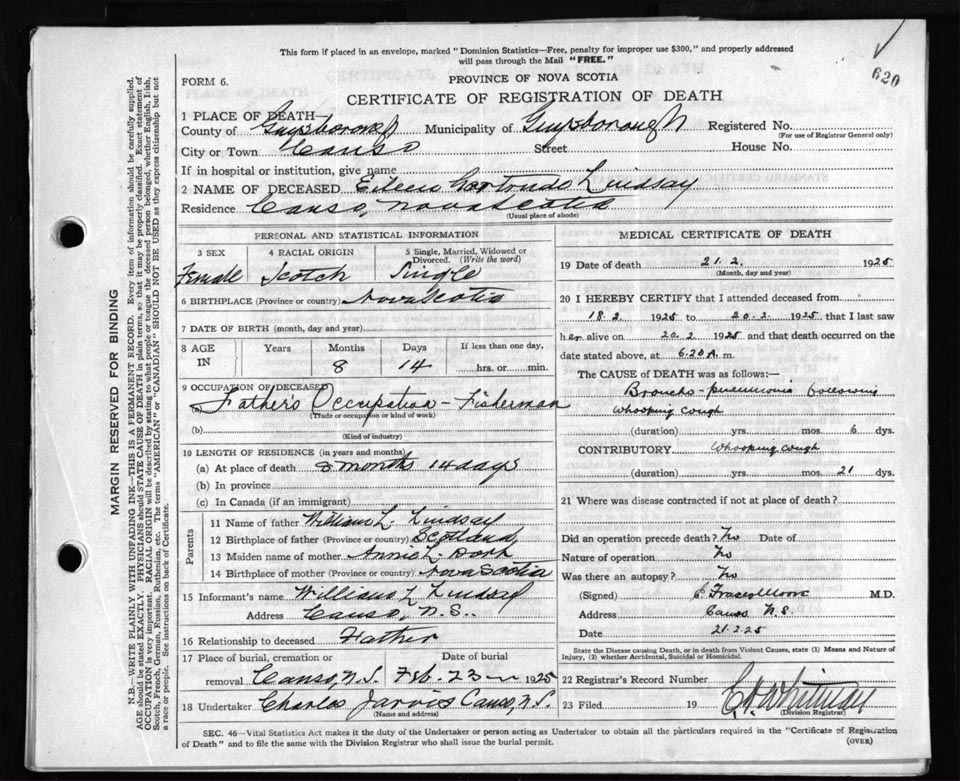 This form if placed in an envelope, marked "Dominion Statistics—Free, penalty for improper use $300," and properly addressed
will pass through the Mail "FREE."
620
FORM 6.
PROVINCE OF NOVA SCOTIA
CERTIFICATE OF REGISTRATION OF DEATH
1 PLACE OF DEATH—
County of Guysborough Municipality of Guysborough Registered No.
(For use of Registrar General only)
City or Town Canso Street House No.
If in hospital or institution, give name
2 NAME OF DECEASED Eileen Gertrude Lindsay
Residence Canso, Nova Scotia
(Usual place of abode)
PERSONAL AND STATISTICAL INFORMATION
3 SEX 4 RACIAL ORIGIN 5 Single, Married, Widowed or
Divorced. (Write the word)
Female Scotch Single
6 BIRTHPLACE (Province or country) Nova Scotia
7 DATE OF BIRTH (month, day and year)
8 AGE Years Months Days If less than one day,
IN 8 14 hrs. or min.
9 OCCUPATION OF DECEASED
Father's Occupation - Fisherman
(Trade or occupation or kind of work)
(b)
(Kind of industry)
10 LENGTH OF RESIDENCE (in years and months)
(a) At place of death 8 months 14 days
(b) In province
(c) In Canada (if an immigrant)
Parents
11 Name of father William L. Lindsay
12 Birthplace of father (Province or country) Scotland
13 Maiden name of mother Annie L.
14 Birthplace of mother (Province or country) Nova Scotia
15 Informant's name William L Lindsay
Address Canso, N.S.
16 Relationship to deceased Father
17 Place of burial, cremation or Date of burial
removal Canso, N.S. Feb. 23 1925
18 Undertaker Charles Jarvis Canso, N.S.
(Name and address)
MEDICAL CERTIFICATE OF DEATH
19 Date of death 21. 2. 1925
(Month, day and year)
20 I HEREBY CERTIFY that I attended deceased from
18.2 1925 to 20.2 1925 that I last saw
her alive on 20.2 1925 and that death occurred on the
date stated above, at 6.20 A. m.
The CAUSE OF DEATH was as follows:—
Broncho-pneumonia following
whooping cough
(duration) yrs. mos. 6 dys.
CONTRIBUTORY Whooping cough
(duration) yrs. mos. 21 dys.
21 Where was disease contracted if not at place of death?
Did an operation precede death? No Date of
Nature of operation No
Was there an autopsy? No
(Signed) M.D.
Address Canso N.S.
Date 21.2.25
State the Disease causing Death, or in death from Violent Causes, state (1) Means and Nature of
Injury, (2) whether Accidental, Suicidal or Homicidal.
22 Registrar's Record Number
23 Filed 19 Whitman
(Division Registrar)
SEC. 46—Vital Statistics Act makes it the duty of the Undertaker or person acting as Undertaker to obtain all the particulars required in the "Certificate of Registration
of Death" and to file the same with the Division Registrar who shall issue the burial permit.
(OVER)
MARGIN RESERVED FOR BINDING
N.B.—WRITE PLAINLY WITH UNFADING INK—THIS IS A PERMANENT RECORD. Every item of information should be carefully supplied.
AGE should be stated EXACTLY. PHYSICIANS should STATE CAUSE OF DEATH in plain terms, so that it may be properly classified. Exact statement of
OCCUPATION is very important. RACIAL ORIGIN will be described by stating to what people or tongue the deceased person belonged, whether English, Irish,
Scotch, French, German, Russian, Ruthenian, etc. The terms "AMERICAN" or "CANADIAN" SHOULD NOT BE USED as they express citizenship but not
a race or people. See instructions on back of Certificate.